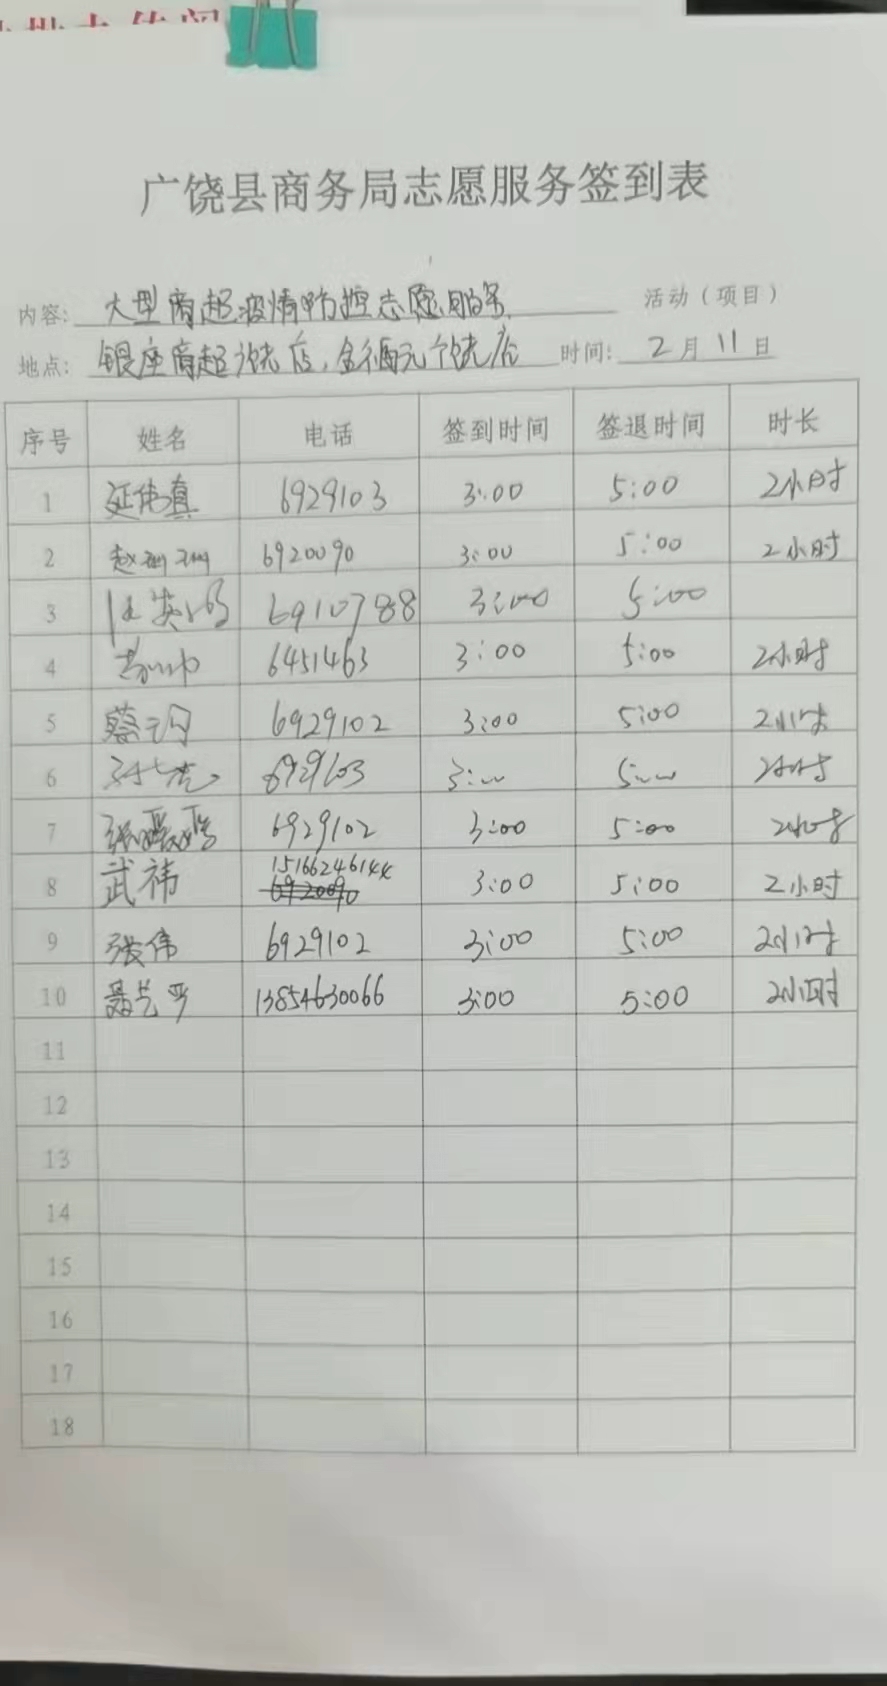 广饶县商务局志愿服务签到表
内容: 大型商超疫情防控志愿服务 活动(项目)
地点: 银座商超饶店, 时间: 2月11日
序号 姓名 电话 签到时间 签退时间 时长
1 延伟真 6929103 3:00 5:00 2小时
2 赵珊珊 6920090 3:00 5:00 2小时
3 6910788 3:00 5:00
4 6451463 3:00 5:00 2小时
5 6929102 3:00 5:00 2小时
6 6929103 3:00 5:00 2小时
7 6929102 3:00 5:00 2小时
8 武祎 15166246144 6920090 3:00 5:00 2小时
9 张伟 6929102 3:00 5:00 2小时
10 聂兰平 13854630066 3:00 5:00 2小时
11
12
13
14
15
16
17
18